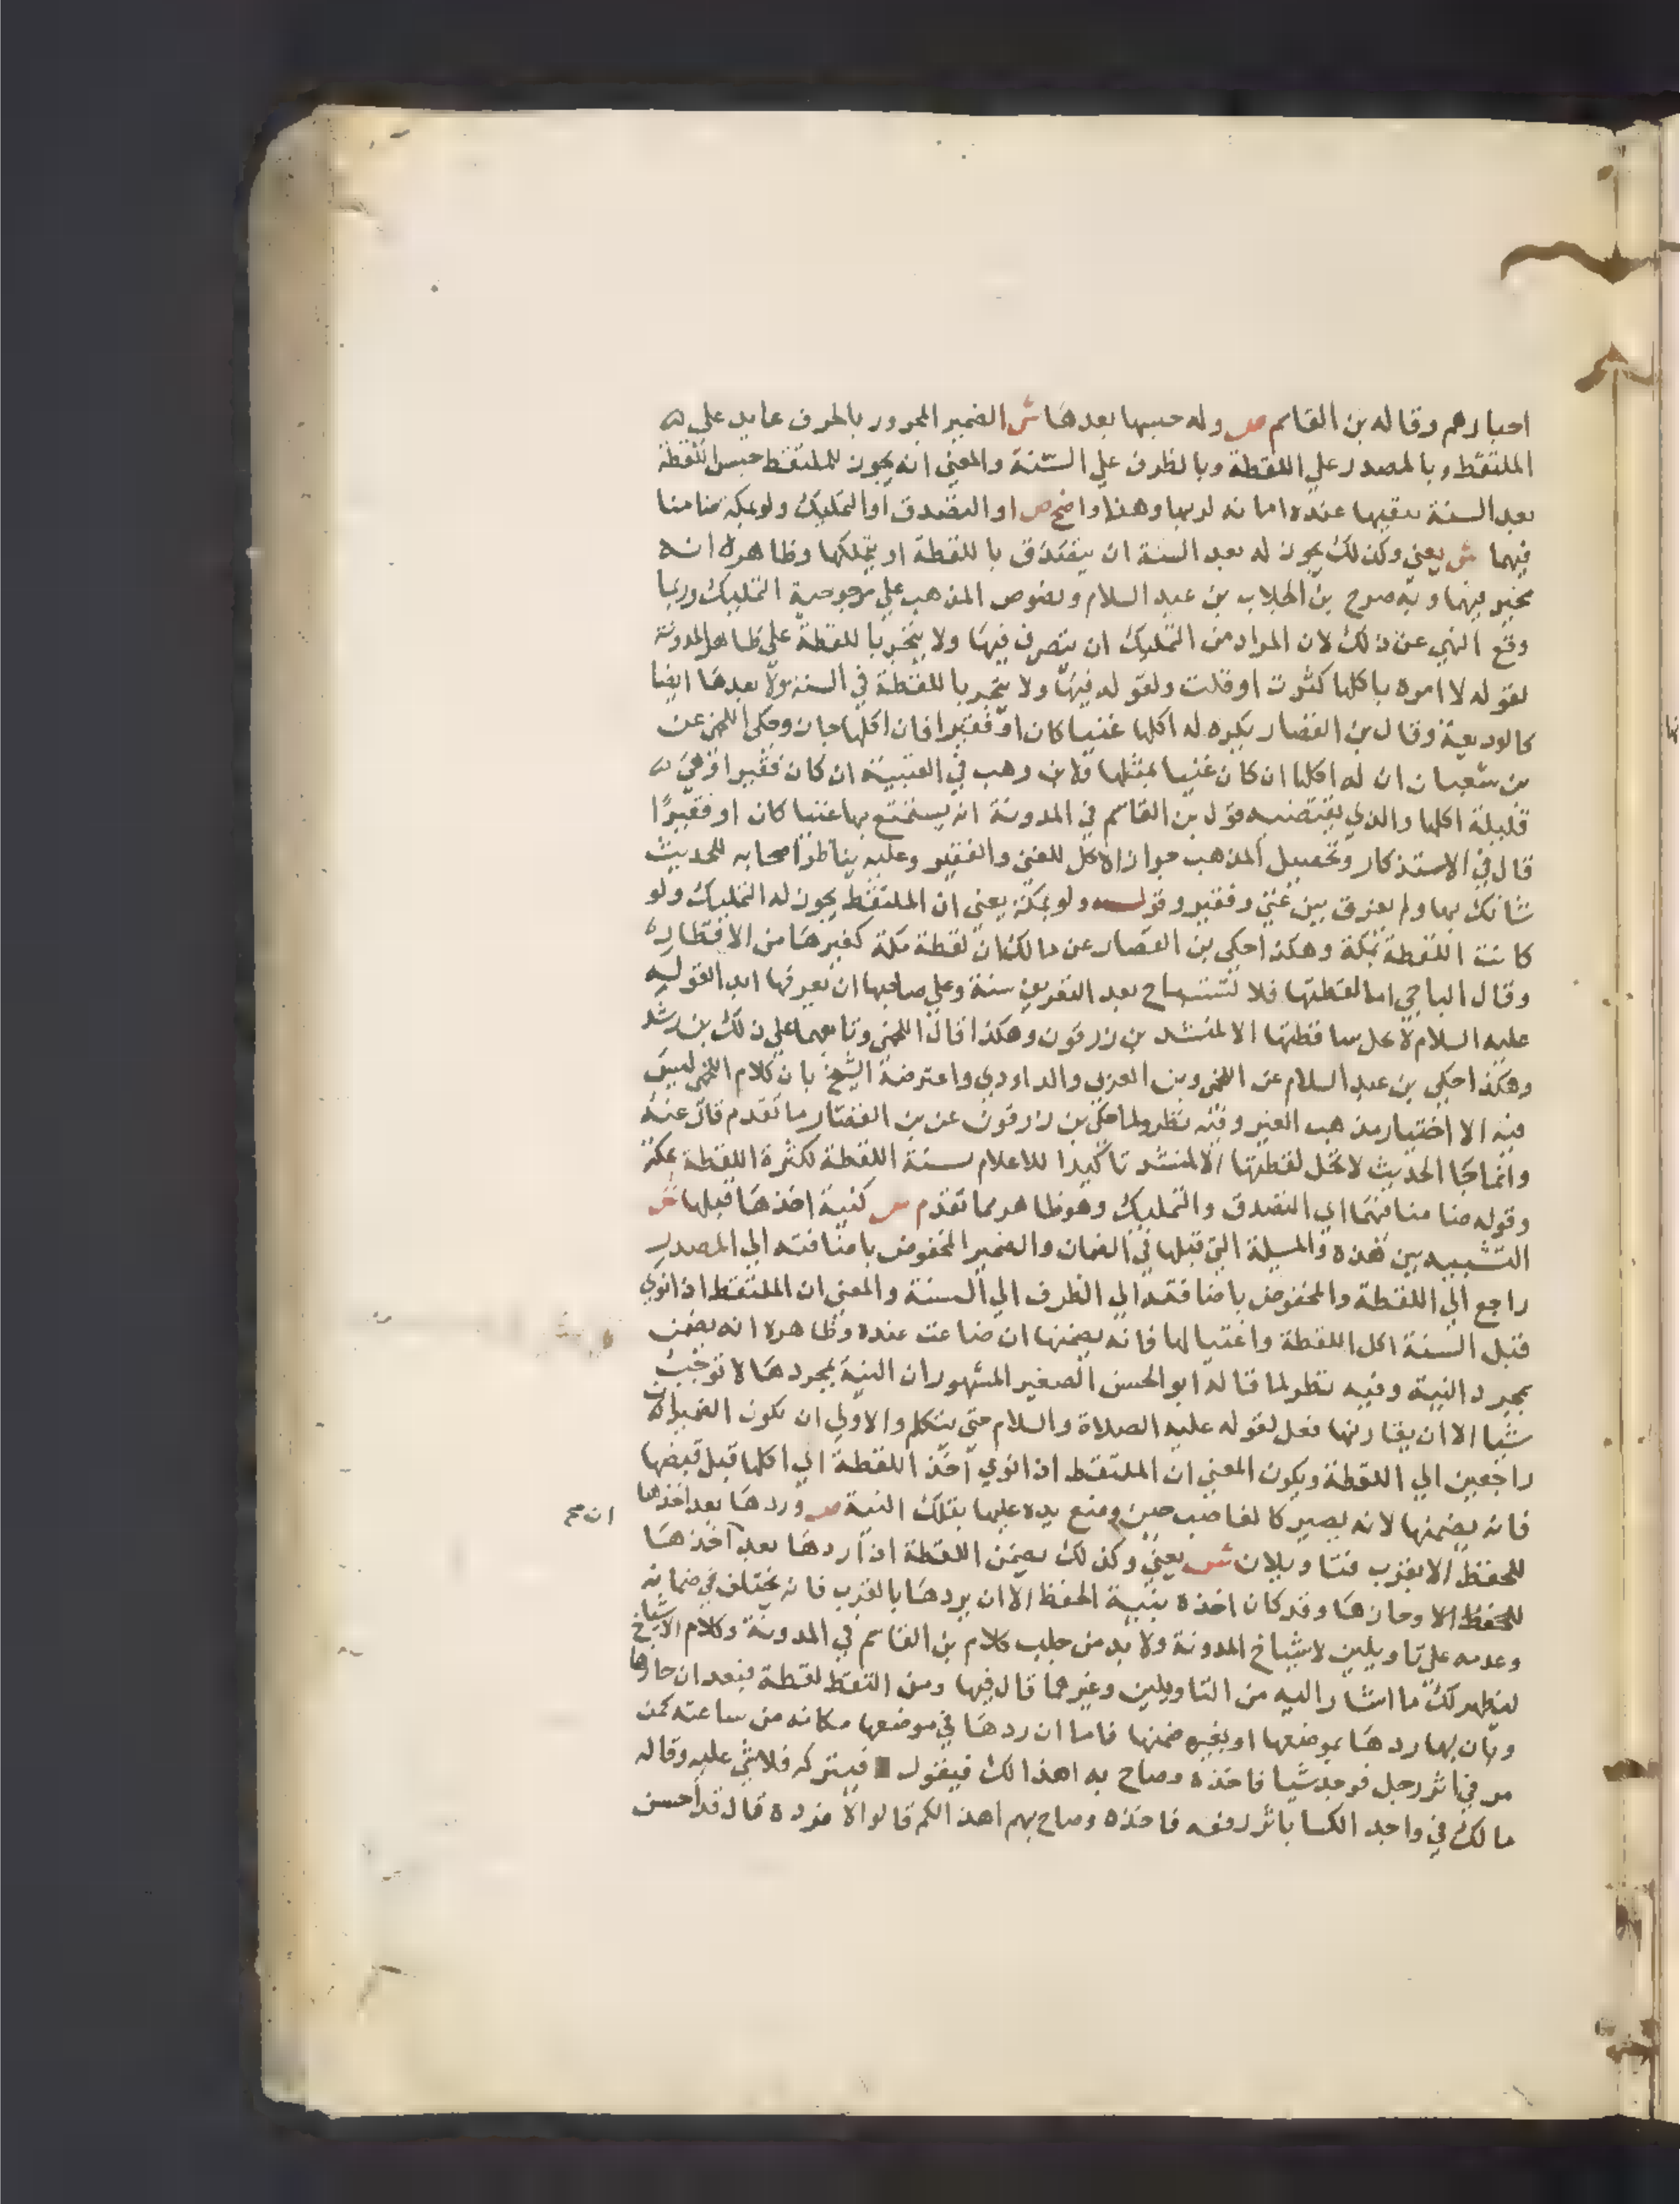 احبارهم وقاله بن القاسم ص وله حبسها بعدها ش الضمير المجرور بالحرف عايد علي
الملتقط وبالمصدر علي اللقطة وبالظرف علي السنة والمعني انه يجوز للملتقط حبس اللقطة
بعد السنة يبقيها عنده امانه لربها وهذا واضح ص او التصدق او التمليك ولو بمكة ضامنا
فيهما ش يعني وكذلك يجوز له بعد السنة ان يتصدق باللقطة او يتملكها وظاهره انه
مخير فيهما وبه صرح بن الجلاب بن عبد السلام ونصوص المذهب علي مرجوحية التمليك وربما
وقع النهي عن ذلك لان المراد من التمليك ان يتصرف فيها ولا يتجر باللقطة علي ظاهر المدونة
لقوله لا امره باكلها كثرت او قلت ولقوله فيها ولا يتجر باللقطة في السنة ولا بعدها ايضا
كالوديعة وقال بن القصار يكره له اكلها غنيا كان او فقيرا فان اكلها جاز وحكي اللخمي عن
بن شعبان ان له اكلها ان كان غنيا بمثلها قال بن وهب في العتبية ان كان فقيرا وهي
قليلة اكلها والذي يقتضيه قول بن القاسم في المدونة انه يستمتع بها غنيا كان او فقيرًا
قال في الاستذكار وتحصيل المذهب جواز الاكل للغني والفقير وعليه يناظر اصحابه للحديث
شانك بها ولم يفرق بين غني وفقير وقوله ولو بمكة يعني ان الملتقط يجوز له التمليك ولو
كانت اللقطة بمكة وهكذا حكي بن القصار عن مالك ان لقطة مكة كغيرها من الاقطار
وقال الباجي اما لقطتها فلا تستباح بعد التعريف سنة وعلي صاحبها ان يعرفها ابدا لقوله
عليه السلام لا تحل ساقطتها الا لمنشد بن زرقون وهكذا قال اللخمي وتابعهما علي ذلك بن رشد
وهكذا حكي بن عبد السلام عن اللخمي وبن العربي والداودي واعترضه الشيخ بان كلام اللخمي ليس
فيه الا اختيار مذهب الغير وفيه نظر ولما حكي بن زرقون عن بن القصار ما تقدم قال عنه
وانما جا الحديث لا تحل لقطتها الا لمنشد تاكيدا للاعلام بسنة اللقطة لكثرة اللقطة بمكة
وقوله ضامنا فيهما اي التصدق والتمليك وهو ظاهر مما تقدم ص كنية اخذها قبلها ش
التشبيه بين هذه والمسيلة التي قبلها في الضمان والضمير المخفوض باضافته الي المصدر
راجع الي اللقطة والمخفوض باضافته الي الظرف الي السنة والمعني ان الملتقط اذا نوي
قبل السنة اكل اللقطة واغتيالها فانه يضمنها ان ضاعت عنده وظاهره انه يضمن
بمجرد النية وفيه نظر لما قاله ابو الحسن الصغير المشهور ان النية بمجردها لا توجب
شيا الا ان يقارنها فعل لقوله عليه الصلاة والسلام حتي يتكلم والاولي ان يكون الضميران
راجعين الي اللقطة ويكون المعني ان الملتقط اذا نوي اخذ اللقطة اي اكلها قبل قبضها
فانه يضمنها لانه يصير كالغاصب حين وضع يده عليها بتلك النية ص وردها بعد اخذها
للحفظ الا بقرب فتاويلان ش يعني وكذلك يضمن اللقطة اذا ردها بعد اخذها
للحفظ الا وحازها وقد كان اخذه بنية الحفظ الا ان يردها بالقرب فانه يختلف في ضمانه
وعدمه علي تاويلين لاشياخ المدونة ولا بد من جلب كلام بن القاسم في المدونة وكلام الاشياخ
ليظهر لك ما اشار اليه من التاويلين وغيرهما قال فيها ومن التقط لقطة فبعد ان حازها
وبان بها ردها بموضعها او بغيره ضمنها فاما ان ردها في موضعها مكانه من ساعته كمن
مر في اثر رجل فوجد شيا فاخذه وصاح به اهذا لك فيقول فيتركه فلا شي عليه وقاله
مالك في واجد الكسا باثر رفقه فاخذه وصاح بهم اهذا لكم قالوا لا فرده قال قد احسن